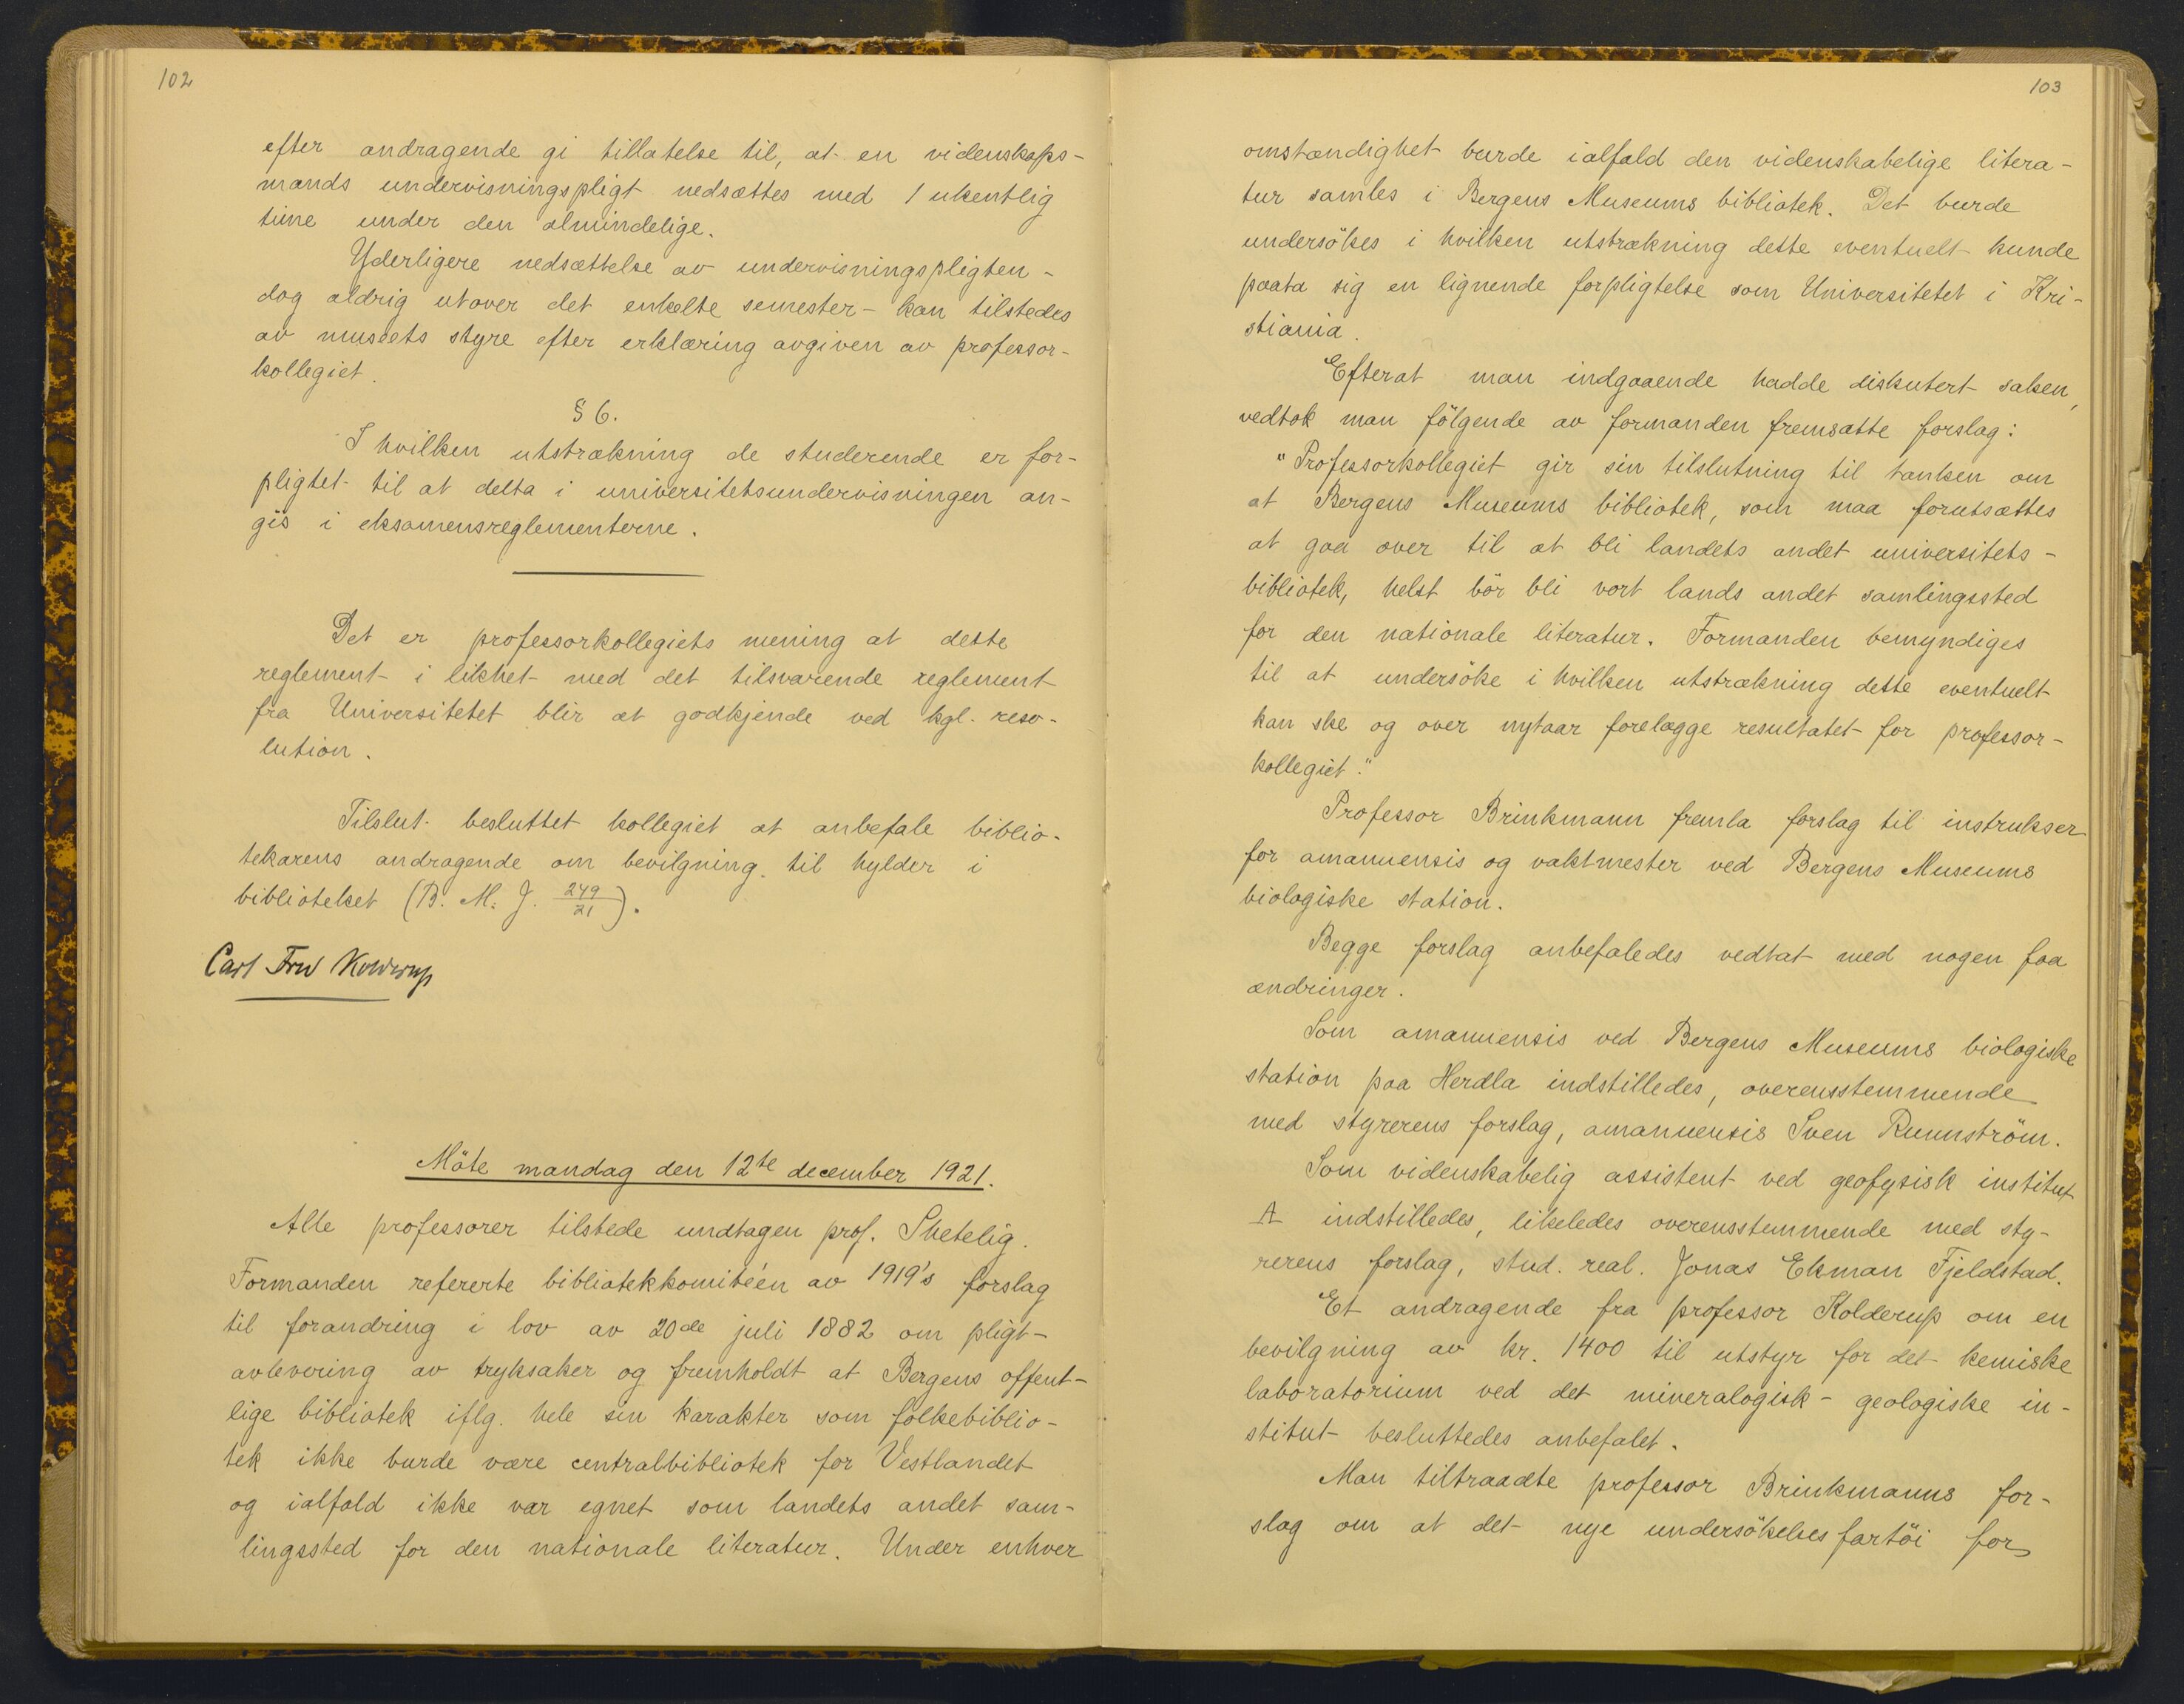 102
efter andragende gi tillatelse til, at en videnskaps-
mands undervisningspligt nedsættes med 1 ukentlig
time under den almindelige.
Yderligere nedsættelse av undervisningspligten -
dog aldrig utover det enkelte semester - kan tilstedes
av museets styre efter erklæring avgiven av professor-
kollegiet.
§ 6.
I hvilken utstrækning de studerende er for-
pligtet til at delta i universitetsundervisningen an-
gis i eksamensreglementerne.
Det er professorkollegiets mening at dette
reglement i likhet med det tilsvarende reglement
fra Universitetet blir at godkjende ved kgl. reso-
lution.
Tilslut besluttet kollegiet at anbefale biblio-
tekarens andragende om bevilgning til hylder i
biblioteket (B. M. J. 249/21).
Carl Fred Kolderup
Möte mandag den 12te december 1921.
Alle professorer tilstede undtagen prof. Shetelig.
Formanden refererte bibliotekkomitéen av 1919's forslag
til forandring i lov av 20de juli 1882 om pligt-
avlevering av tryksaker og fremholdt at Bergens offent-
lige bibliotek iflg. hele sin karakter som folkebiblio-
tek ikke burde være centralbibliotek for Vestlandet
og ialfald ikke var egnet som landets andet sam-
lingssted for den nationale literatur. Under enhver
103
omstændighet burde ialfald den videnskabelige litera-
tur samles i Bergens Museums bibliotek. Det burde
undersökes i hvilken utstrækning dette eventuelt kunde
paata sig en lignende forpligtelse som Universitetet i Kri-
stiania.
Efterat man indgaaende hadde diskutert saken,
vedtok man fölgende av formanden fremsatte forslag:
"Professorkollegiet gir sin tilslutning til tanken om
at Bergens Museums bibliotek, som maa forutsættes
at gaa over til at bli landets andet universitets-
bibliotek, helst bör bli vort lands andet samlingssted
for den nationale literatur. Formanden bemyndiges
til at undersöke i hvilken utstrækning dette eventuelt
kan ske og over nytaar forelægge resultatet for professor-
kollegiet."
Professor Brinkmann fremla forslag til instrukser
for amanuensis og vaktmester ved Bergens Museums
biologiske station.
Begge forslag anbefaledes vedtat med nogen faa
ændringer.
Som amanuensis ved Bergens Museums biologiske
station paa Herdla indstilledes, overensstemmende
med styrerens forslag, amanuensis Sven Runnström.
Som videnskabelig assistent ved geofysisk institut
A indstilledes, likeledes overensstemmende med sty-
rerens forslag, stud. real. Jonas Ekman Fjeldstad.
Et andragende fra professor Kolderup om en
bevilgning av kr. 1400 til utstyr for det kemiske
laboratorium ved det mineralogisk-geologiske in-
stitut besluttedes anbefalet.
Man tiltraadte professor Brinkmanns for-
slag om at det nye undersökelsesfartöi for